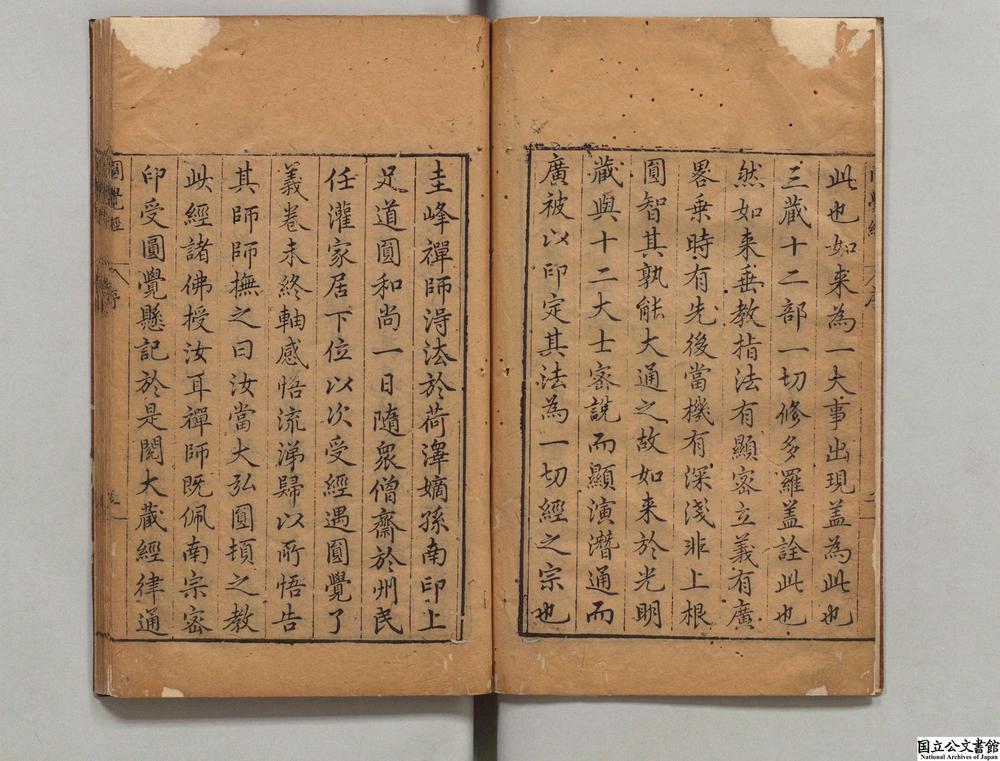 此也如来為一大事出現盖為此也
三藏十二部一切修多羅盖詮此也
然如来垂教指法有顯密立義有廣
畧乗時有先後當機有深淺非上根
圓智其孰能大通之故如来於光明
藏與十二大士宻說而顯演潛通而
廣被以印定其法為一切經之宗也
圭峰禪師淂法於荷澤嫡孫南印上
足道圓和尚一日隨衆僧齋於州民
任灌家居下位以次受經遇圓覺了
義卷未終軸感悟流涕歸以所悟告
其師師撫之曰汝當大弘圓頓之教
此經諸佛授汝耳禪師既佩南宗宻
印受圓覺懸記於是閱大藏經律通
圓覺經
序
国立公文書館
National Archives of Japan